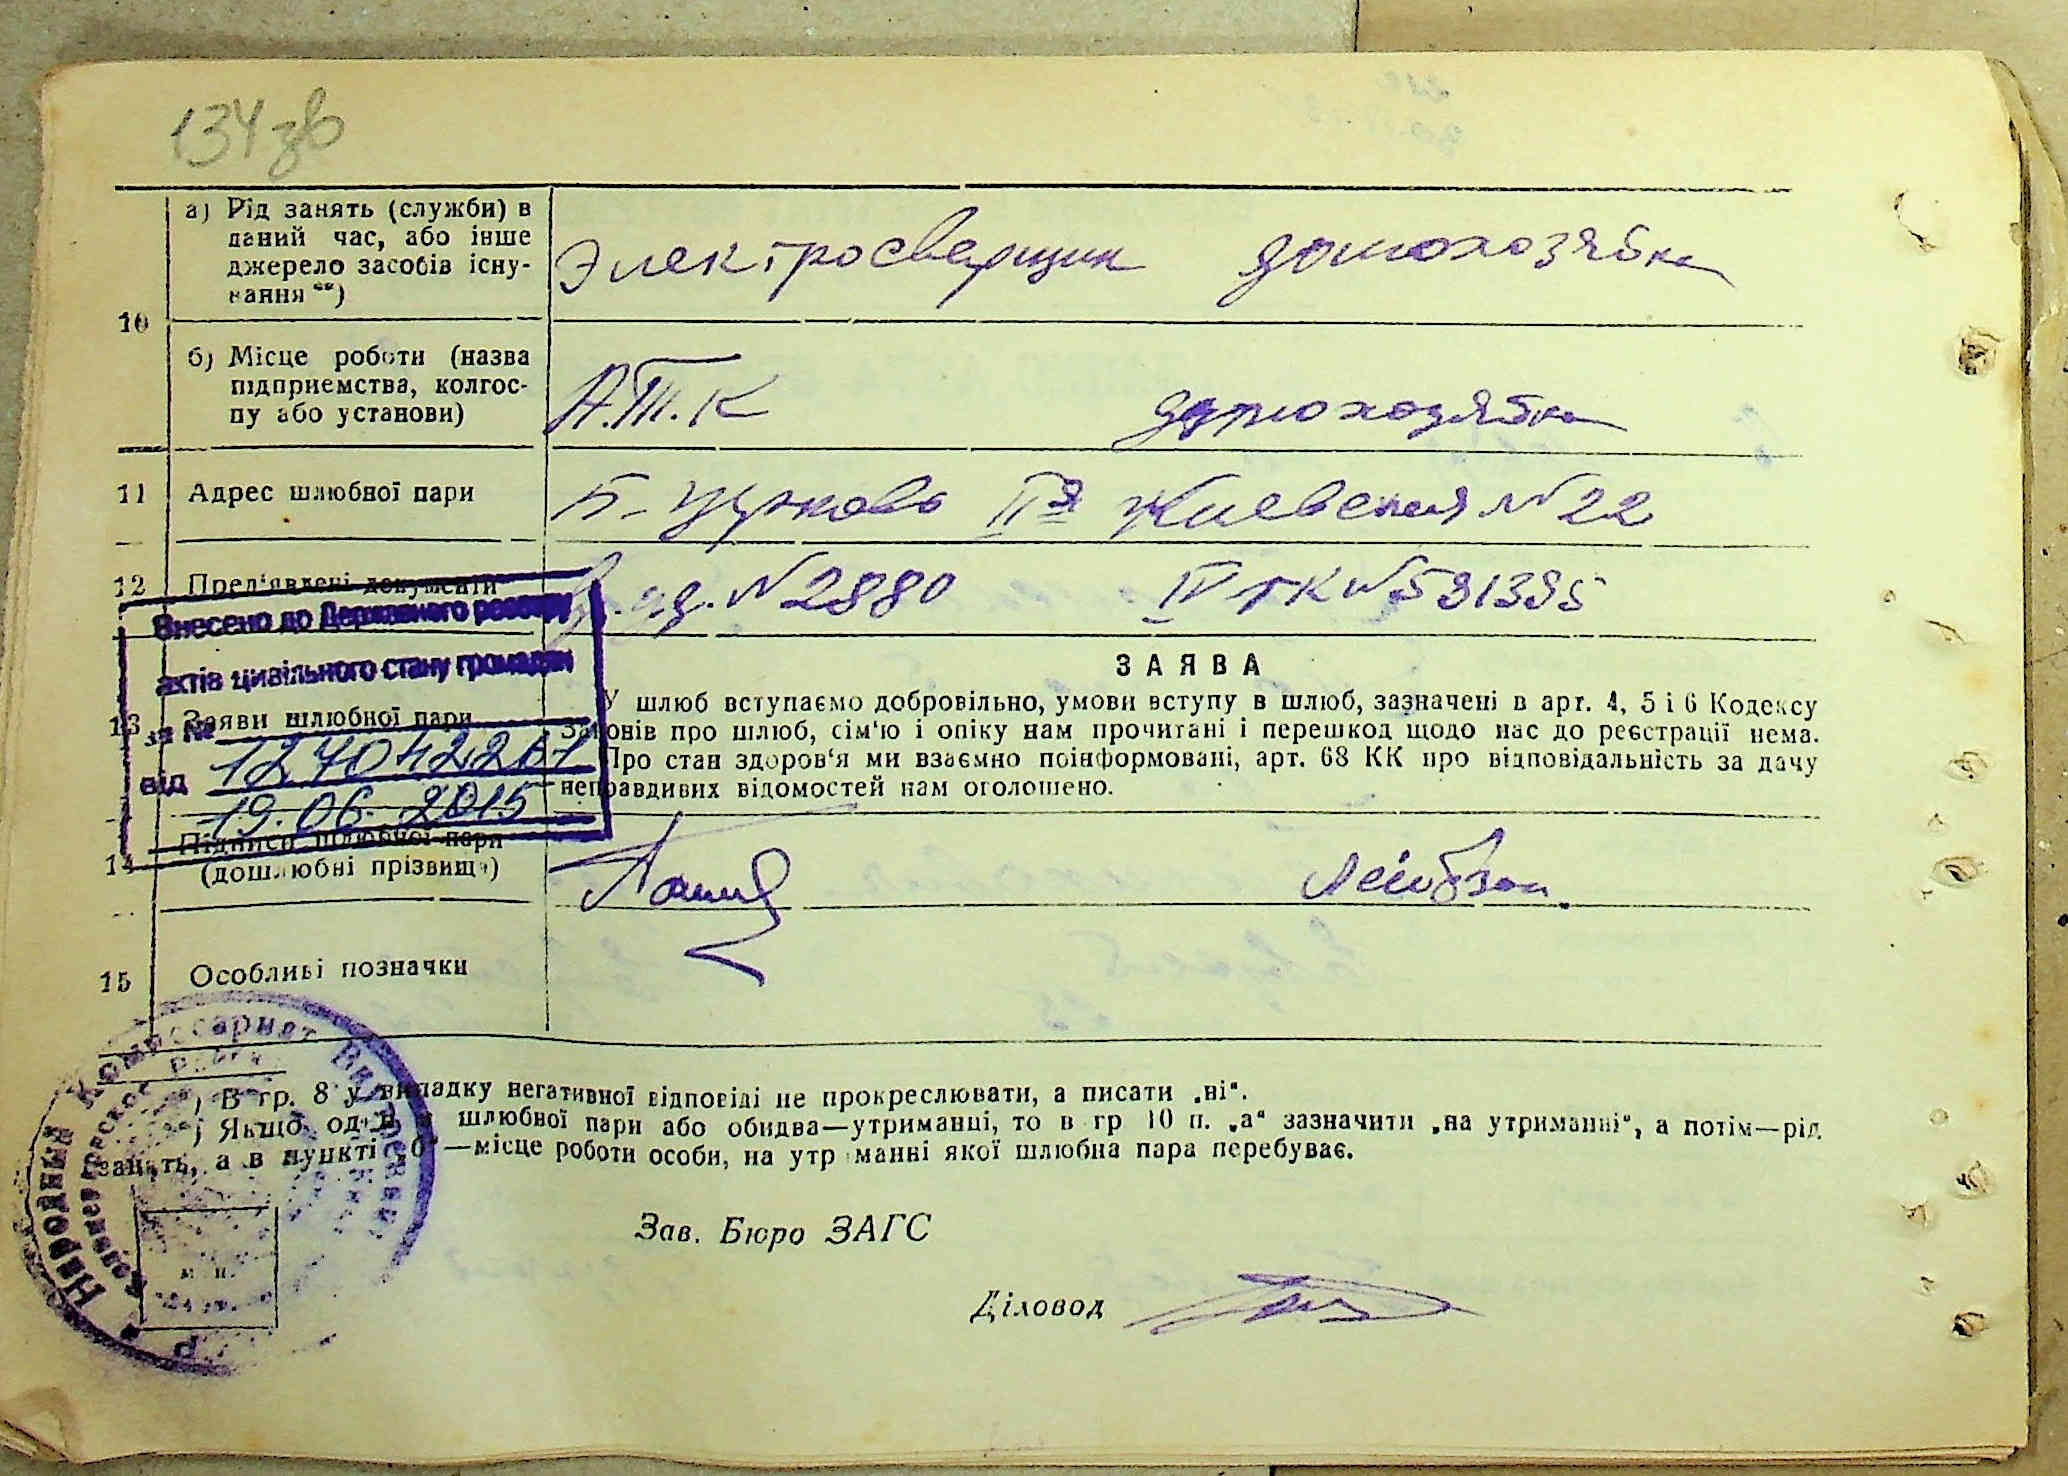 134 зв
а) Рід занять (служби) в
даний час, або інше
джерело засобів існу-
вання **)
Электросварщик домохозяйка
10
б) Місце роботи (назва
підприємства, колгос-
пу або установи)
А.Т.К домохозяйка
11 Адрес шлюбної пари
Б-Церковь IIя Киевская №22
12 Пред'явлені документи
№2880 IV ГК №591395
Внесено до Державного реєстру
актів цивільного стану громадян
за № 127042261
від 19.06.2015
13 Заяви шлюбної пари
ЗАЯВА
У шлюб вступаємо добровільно, умови вступу в шлюб, зазначені в арт. 4, 5 і 6 Кодексу
Законів про шлюб, сім'ю і опіку нам прочитані і перешкод щодо нас до реєстрації нема.
Про стан здоров'я ми взаємно поінформовані, арт. 68 КК про відповідальність за дачу
неправдивих відомостей нам оголошено.
14 Підписи шлюбної пари
(дошлюбні прізвища)
Лейбзон
15 Особливі позначки
*) В гр. 8 у випадку негативної відповіді не прокреслювати, а писати „ні“.
**) Якщо один з шлюбної пари або обидва—утриманці, то в гр 10 п. „а“ зазначити „на утриманні“, а потім—рід
занять, а в пункті „б“—місце роботи особи, на утриманні якої шлюбна пара перебуває.
Народный Комиссариат Внутренних
м. п.
Зав. Бюро ЗАГС
Діловод